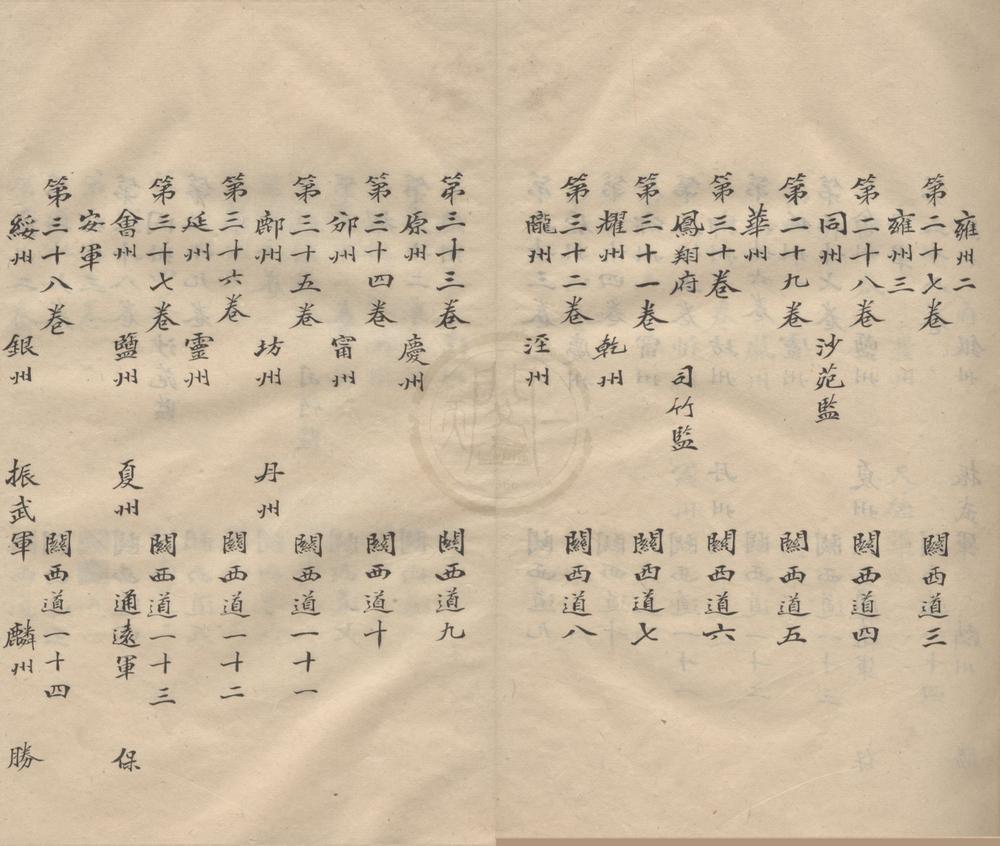 雍州二
第二十七卷 關西道三
雍州三
第二十八卷 關西道四
同州 沙苑監
第二十九卷 關西道五
華州
第三十卷 關西道六
鳳翔府 司竹監
第三十一卷 關西道七
耀州 乾州
第三十二卷 關西道八
隴州 涇州
第三十三卷 關西道九
原州 慶州
第三十四卷 關西道十
邠州 甯州
第三十五卷 關西道一十一
鄜州 坊州 丹州
第三十六卷 關西道一十二
延州 靈州
第三十七卷 關西道一十三
會州 鹽州 夏州 通遠軍 保
安軍
第三十八卷 關西道一十四
綏州 銀州 振武軍 麟州 勝